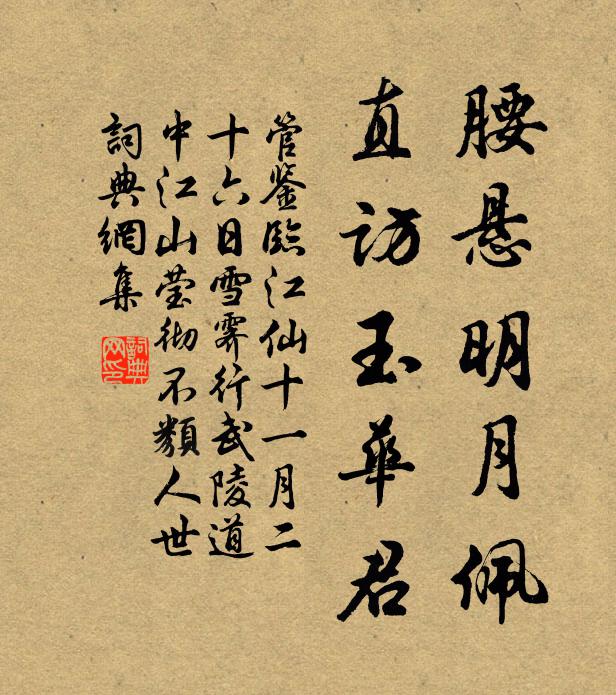 腰悬明月佩
直訪玉華君
管鉴臨江仙十一月二
十六日雪霽行武陵道
中江山莹彻不類人世
詞典網集
詞典
网印